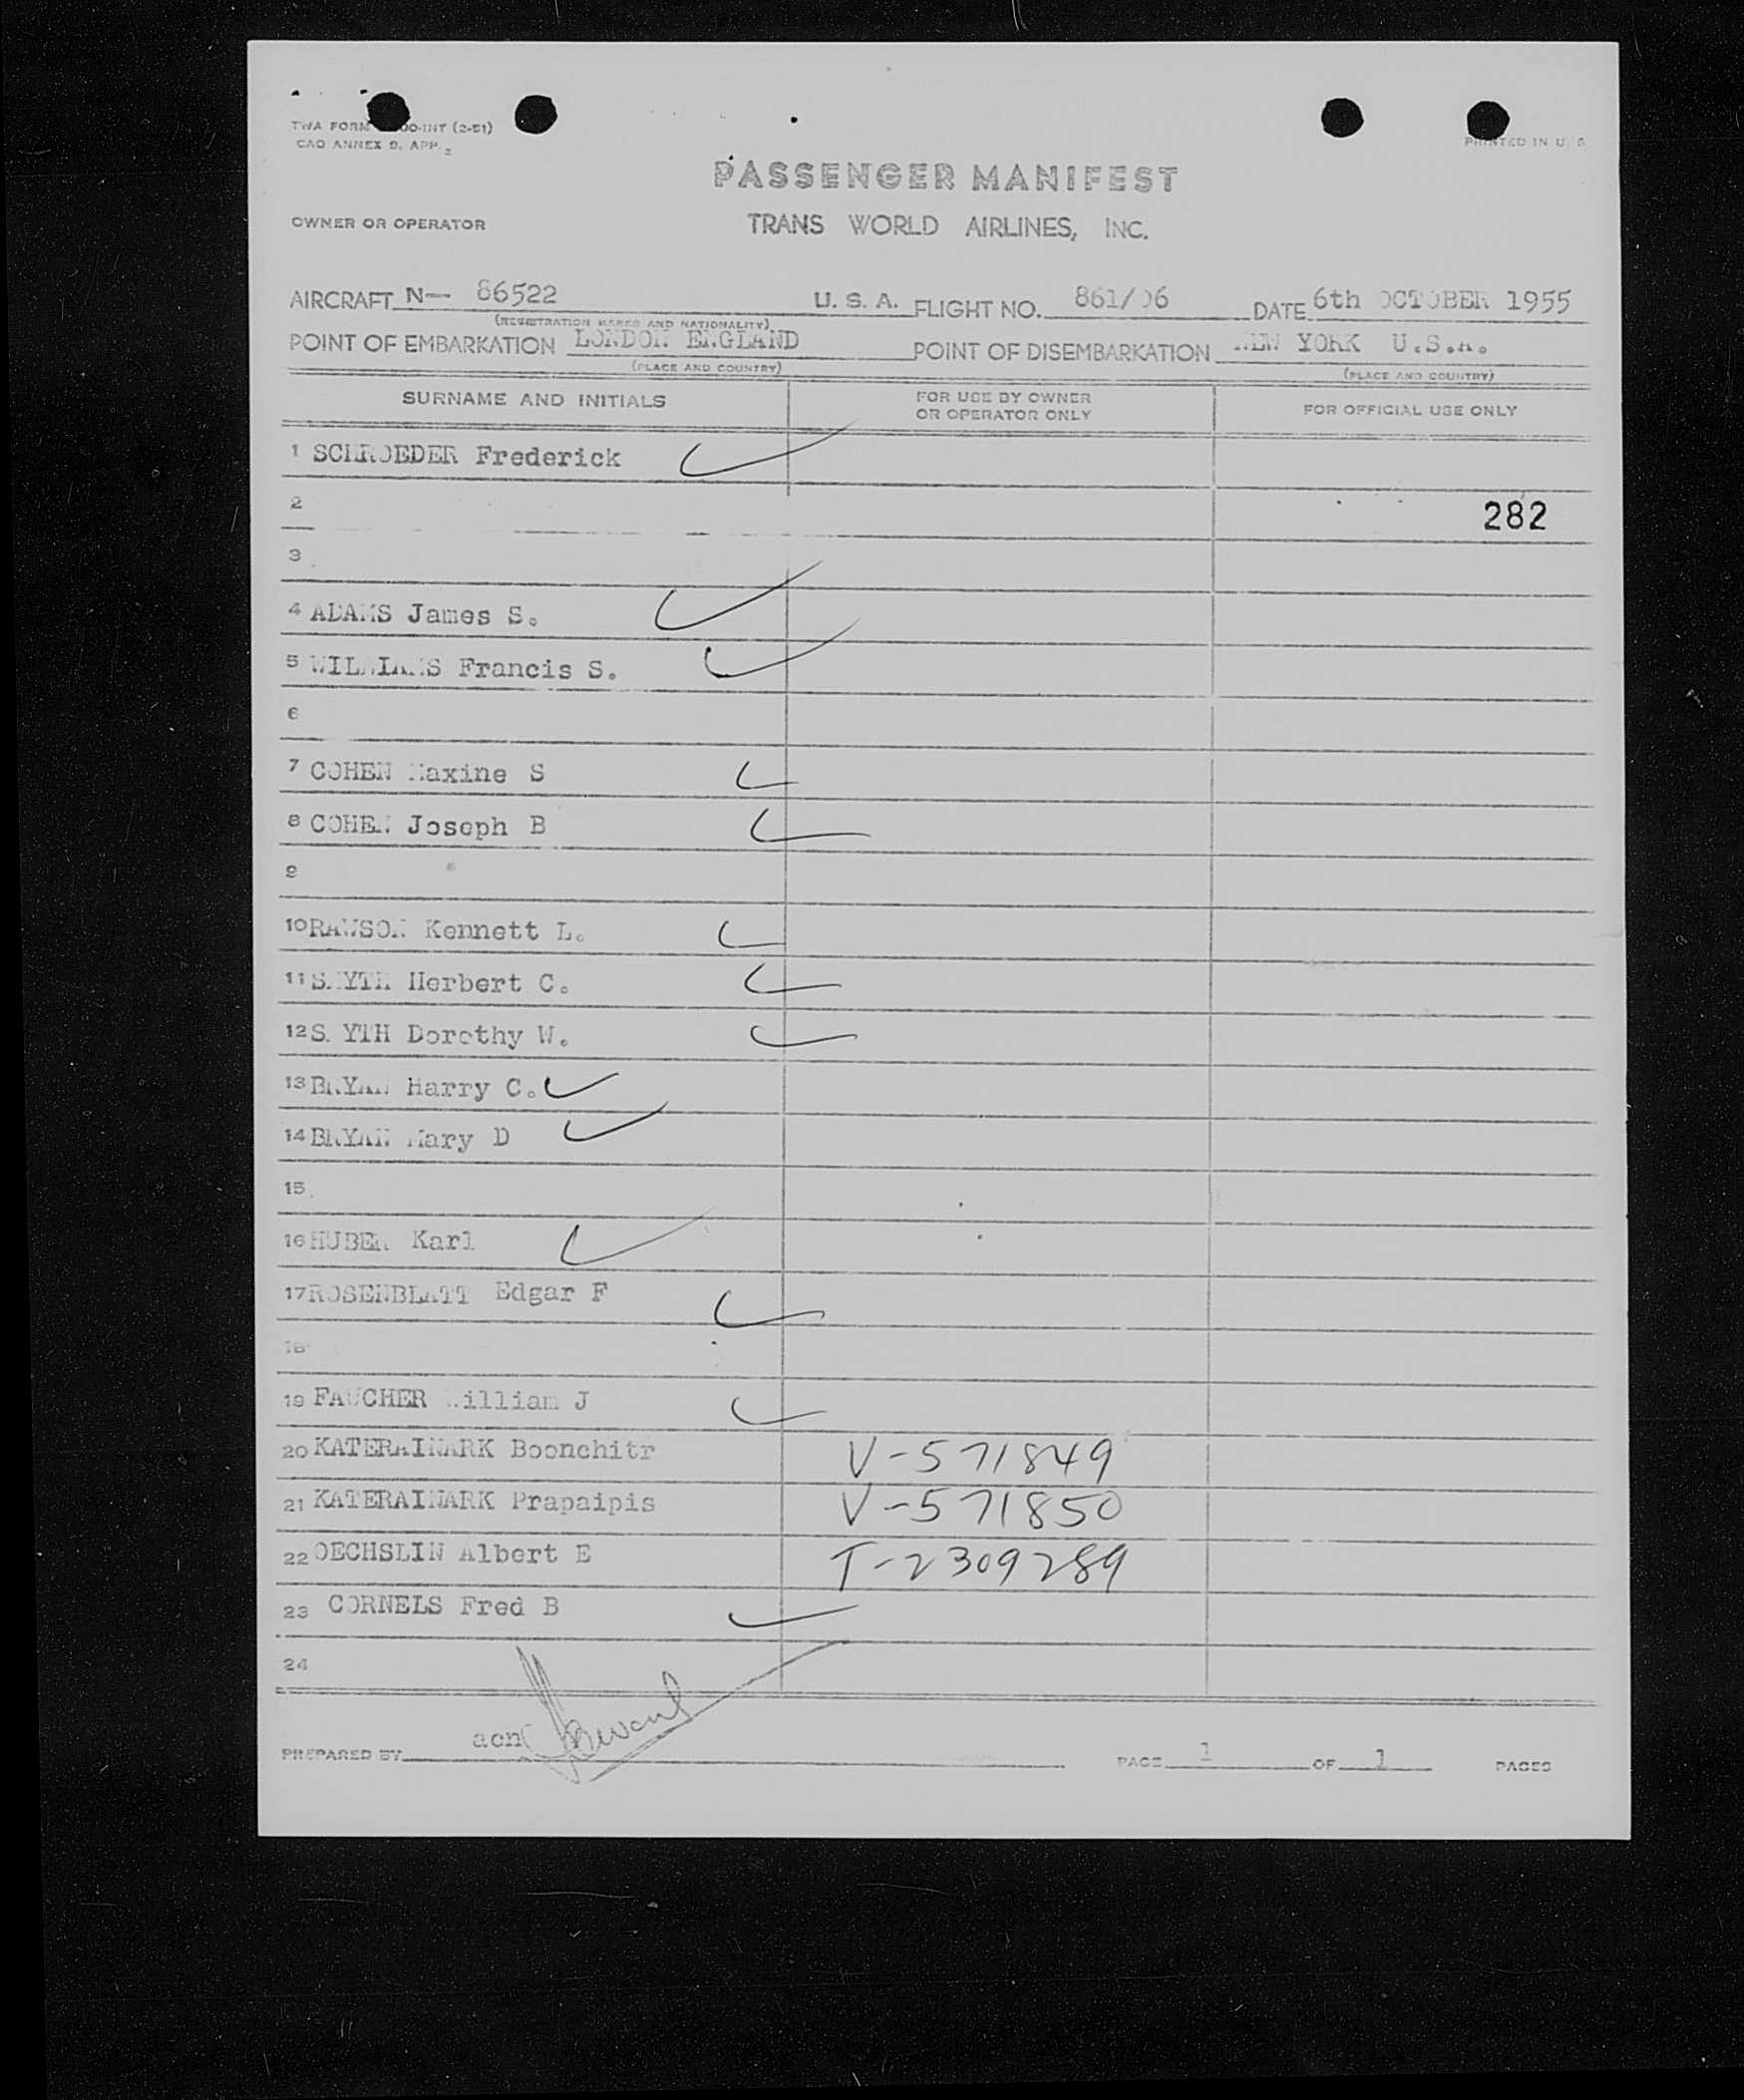 TWA FORM OO-INT (2-51)
CAO ANNEX 9, APP. 2
PRINTED IN U. S
PASSENGER MANIFEST
OWNER OR OPERATOR TRANS WORLD AIRLINES, INC.
AIRCRAFT N— 86522 U. S. A. FLIGHT NO. 861/06 DATE 6th OCTOBER 1955
(REGISTRATION MARKS AND NATIONALITY)
POINT OF EMBARKATION LONDON ENGLAND POINT OF DISEMBARKATION NEW YORK U.S.A.
(PLACE AND COUNTRY) (PLACE AND COUNTRY)
SURNAME AND INITIALS FOR USE BY OWNER OR OPERATOR ONLY FOR OFFICIAL USE ONLY
1 SCHROEDER Frederick
2 282
3
4 ADAMS James S.
5 WILLIAMS Francis S.
6
7 COHEN Maxine S
8 COHEN Joseph B
9
10 RAWSON Kennett L.
11 SMYTH Herbert C.
12 SMYTH Dorothy W.
13 BRYAN Harry C.
14 BRYAN Mary D
15
16 HUBER Karl
17 ROSENBLATT Edgar F
18
19 FAUCHER William J
20 KATERAINARK Boonchitr V-571849
21 KATERAINARK Prapaipis V-571850
22 OECHSLIN Albert E T-2309289
23 CORNELS Fred B
24
PREPARED BY acn PAGE 1 OF 1 PAGES